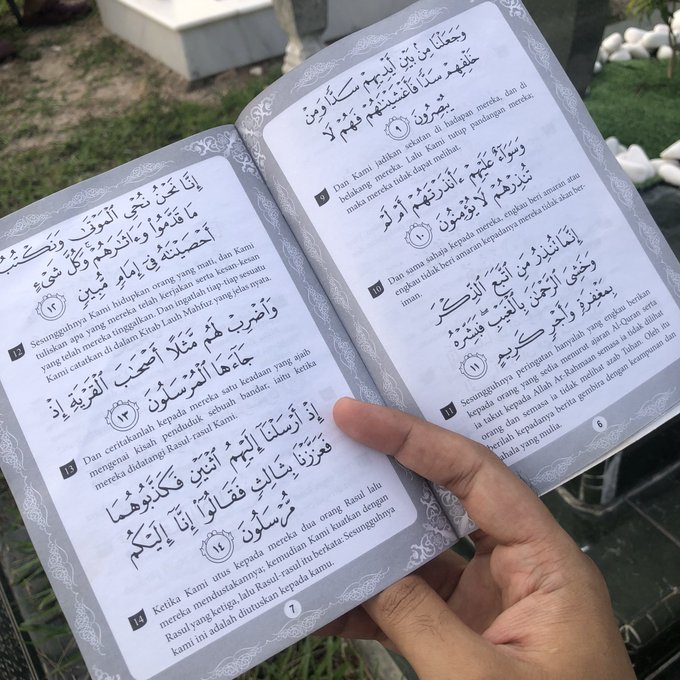 وَجَعَلْنَا مِنۢ بَيْنِ أَيْدِيهِمْ سَدًّا وَمِنْ
خَلْفِهِمْ سَدًّا فَأَغْشَيْنَٰهُمْ فَهُمْ لَا
يُبْصِرُونَ ٩
9 Dan Kami jadikan sekatan di hadapan mereka, dan di
belakang mereka. Lalu Kami tutup pandangan mereka;
maka mereka tidak dapat melihat.
وَسَوَآءٌ عَلَيْهِمْ ءَأَنذَرْتَهُمْ أَمْ لَمْ
تُنذِرْهُمْ لَا يُؤْمِنُونَ ١٠
10 Dan sama sahaja kepada mereka, engkau beri amaran atau
engkau tidak beri amaran kepadanya mereka tidak akan ber-
iman.
إِنَّمَا تُنذِرُ مَنِ ٱتَّبَعَ ٱلذِّكْرَ
وَخَشِىَ ٱلرَّحْمَٰنَ بِٱلْغَيْبِ فَبَشِّرْهُ
بِمَغْفِرَةٍ وَأَجْرٍ كَرِيمٍ ١١
11 Sesungguhnya peringatan hanyalah yang engkau berikan
kepada orang yang sedia menurut ajaran Al-Quran serta
ia takut kepada Allah Ar-Rahman semasa ia tidak dilihat
orang dan semasa ia tidak melihat azab Tuhan. Oleh itu
berilah kepadanya berita gembira dengan keampunan dan
pahala yang mulia.
6
إِنَّا نَحْنُ نُحْىِ ٱلْمَوْتَىٰ وَنَكْتُبُ
مَا قَدَّمُوا۟ وَءَاثَٰرَهُمْ وَكُلَّ شَىْءٍ
أَحْصَيْنَٰهُ فِىٓ إِمَامٍ مُّبِينٍ ١٢
12 Sesungguhnya Kami hidupkan orang yang mati, dan Kami
tuliskan apa yang mereka telah kerjakan serta kesan-kesan
yang telah mereka tinggalkan. Dan ingatlah tiap-tiap sesuatu
Kami catatkan di dalam Kitab Lauh Mahfuz yang jelas nyata.
وَٱضْرِبْ لَهُم مَّثَلًا أَصْحَٰبَ ٱلْقَرْيَةِ إِذْ
جَآءَهَا ٱلْمُرْسَلُونَ ١٣
13 Dan ceritakanlah kepada mereka satu keadaan yang ajaib
mengenai kisah penduduk sebuah bandar, iaitu ketika
mereka didatangi Rasul-rasul Kami.
إِذْ أَرْسَلْنَآ إِلَيْهِمُ ٱثْنَيْنِ فَكَذَّبُوهُمَا
فَعَزَّزْنَا بِثَالِثٍ فَقَالُوٓا۟ إِنَّآ إِلَيْكُم
مُّرْسَلُونَ ١٤
14 Ketika Kami utus kepada mereka dua orang Rasul lalu
mereka mendustakannya; kemudian Kami kuatkan dengan
Rasul yang ketiga, lalu Rasul-rasul itu berkata: Sesungguhnya
kami ini adalah diutuskan kepada kamu.
7